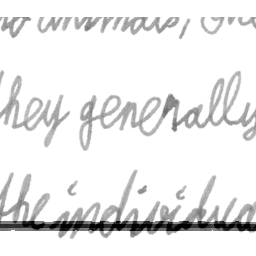 no animals,
they generally
the individua